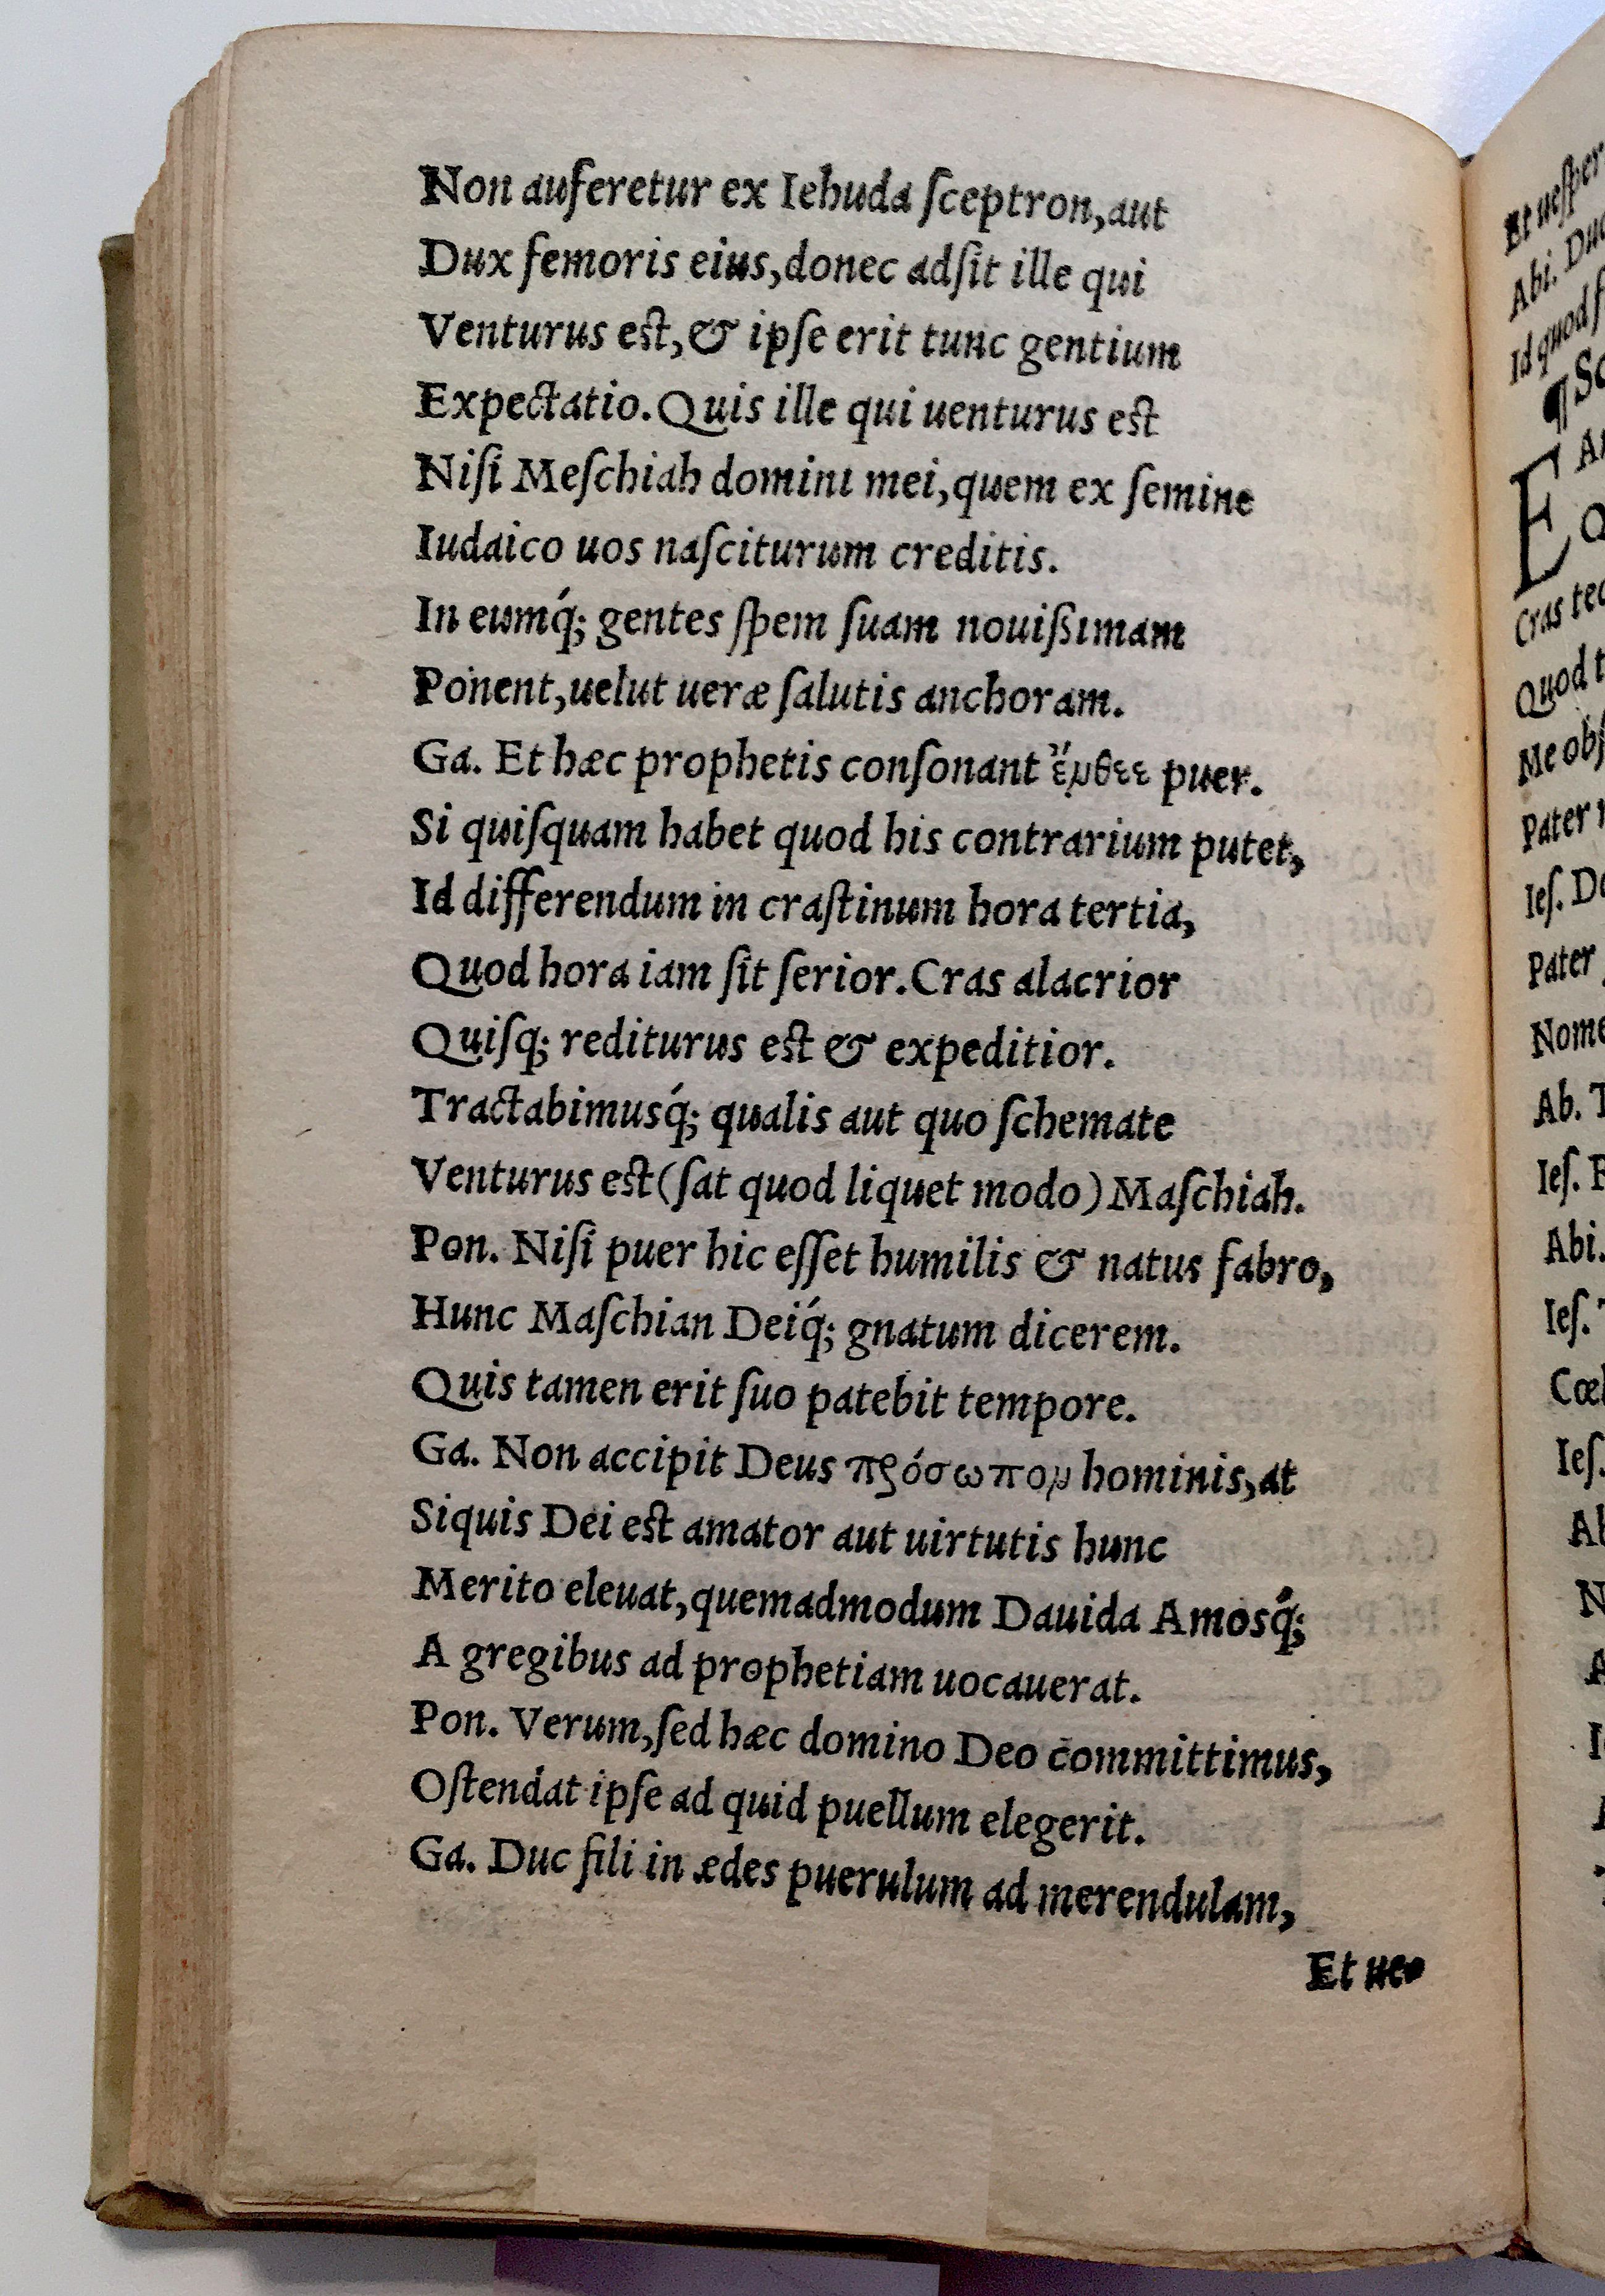 Non auferetur ex Iehuda ſceptron,aut
Dux femoris eius,donec adſit ille qui
Venturus est,& ipſe erit tunc gentium
Expectatio.Quis ille qui uenturus est
Niſi Meſchiah domini mei,quem ex ſemine
Iudaico uos naſciturum creditis.
In eumq́; gentes ſpem ſuam nouiſsimam
Ponent,uelut ueræ ſalutis anchoram.
Ga. Et hæc prophetis conſonant ἔνθεε puer.
Si quiſquam habet quod his contrarium putet,
Id differendum in craſtinum hora tertia,
Quod hora iam ſit ſerior.Cras alacrior
Quiſq; rediturus est & expeditior.
Tractabimusq́; qualis aut quo ſchemate
Venturus est(ſat quod liquet modo)Maſchiah.
Pon. Niſi puer hic eſſet humilis & natus fabro,
Hunc Maſchian Deiq́; gnatum dicerem.
Quis tamen erit ſuo patebit tempore.
Ga. Non accipit Deus πρόσωπον hominis,at
Siquis Dei est amator aut uirtutis hunc
Merito eleuat,quemadmodum Dauida Amosq́;
A gregibus ad prophetiam uocauerat.
Pon. Verum,ſed hæc domino Deo committimus,
Oſtendat ipſe ad quid puellum elegerit.
Ga. Duc fili in ædes puerulum ad merendulam,
Et ue
Et ueſper
Abi. Duc
Id quod ſ
¶ Sc
E
Cras tec
Quod t
Me obſ
Pater
Ieſ. De
Pater
Nome
Ab. T
Ieſ.
Abi.
Ieſ. T
Cœl
Ieſ.
Ab